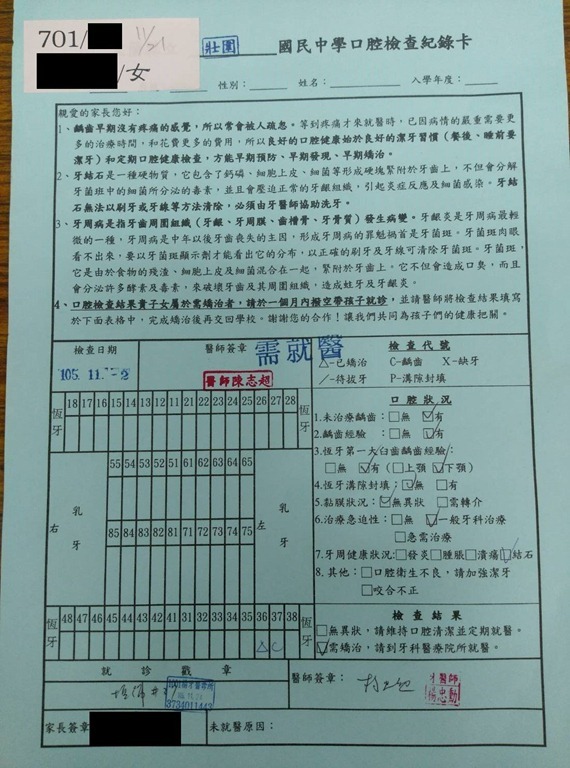 701/
11/21
/女
壯圍 國民中學口腔檢查紀錄卡
性別： 姓名： 入學年度：
親愛的家長您好：
1、齲齒早期沒有疼痛的感覺，所以常會被人疏忽。等到疼痛才來就醫時，已因病情的嚴重需要更
多的治療時間，和花費更多的費用，所以良好的口腔健康始於良好的潔牙習慣（餐後、睡前要
潔牙）和定期口腔健康檢查，方能早期預防、早期發現、早期矯治。
2、牙結石是一種硬物質，它包含了鈣磷、細胞上皮、細菌等形成硬塊緊附於牙齒上，不但會分解
牙菌斑中的細菌所分泌的毒素，並且會壓迫正常的牙齦組織，引起炎症反應及細菌感染。牙結
石無法以刷牙或牙線等方法清除，必須由牙醫師協助洗牙。
3、牙周病是指牙齒周圍組織（牙齦、牙周膜、齒槽骨、牙骨質）發生病變。牙齦炎是牙周病最輕
微的一種，牙周病是中年以後牙齒喪失的主因，形成牙周病的罪魁禍首是牙菌斑。牙菌斑肉眼
看不出來，要以牙菌斑顯示劑才能看出它的分布，以正確的刷牙及牙線可清除牙菌斑。牙菌斑，
它是由於食物的殘渣、細胞上皮及細菌混合在一起，緊附於牙齒上，它不但會造成口臭，而且
會分泌許多酵素及毒素，來破壞牙齒及其周圍組織，造成蛀牙及牙齦炎。
4、口腔檢查結果貴子女屬於需矯治者，請於一個月內撥空帶孩子就診，並請醫師將檢查結果填寫
於下面表格中，完成矯治後再交回學校。謝謝您的合作！讓我們共同為孩子們的健康把關。
檢查日期 醫師簽章 需就醫 檢查代號
105. 11. -2
醫師陳志超
△-已矯治 C-齲齒 X-缺牙
／-待拔牙 P-溝隙封填
恆牙 18 17 16 15 14 13 12 11 21 22 23 24 25 26 27 28 恆牙
口腔狀況
1.未治療齲齒：□無 ☑有
2.齲齒經驗 ：□無 ☑有
3.恆牙第一大臼齒齲齒經驗：
□無 ☑有(□上顎 ☑下顎)
4.恆牙溝隙封填：☑無 □有
5.黏膜狀況：☑無異狀 □需轉介
6.治療急迫性：□無 ☑一般牙科治療
□急需治療
7.牙周健康狀況：□發炎□腫脹□潰瘍☑結石
8.其他：□口腔衛生不良，請加強潔牙
□咬合不正
55 54 53 52 51 61 62 63 64 65
右 乳牙 左 乳牙
85 84 83 82 81 71 72 73 74 75
恆牙 48 47 46 45 44 43 42 41 31 32 33 34 35 36 37 38 恆牙
△ C
檢查結果
□無異狀，請維持口腔清潔並定期就醫。
☑需矯治，請到牙科醫療院所就醫。
就診戳章
醫師簽章：
3734011443
牙醫師
楊忠勳
家長簽章
未就醫原因：